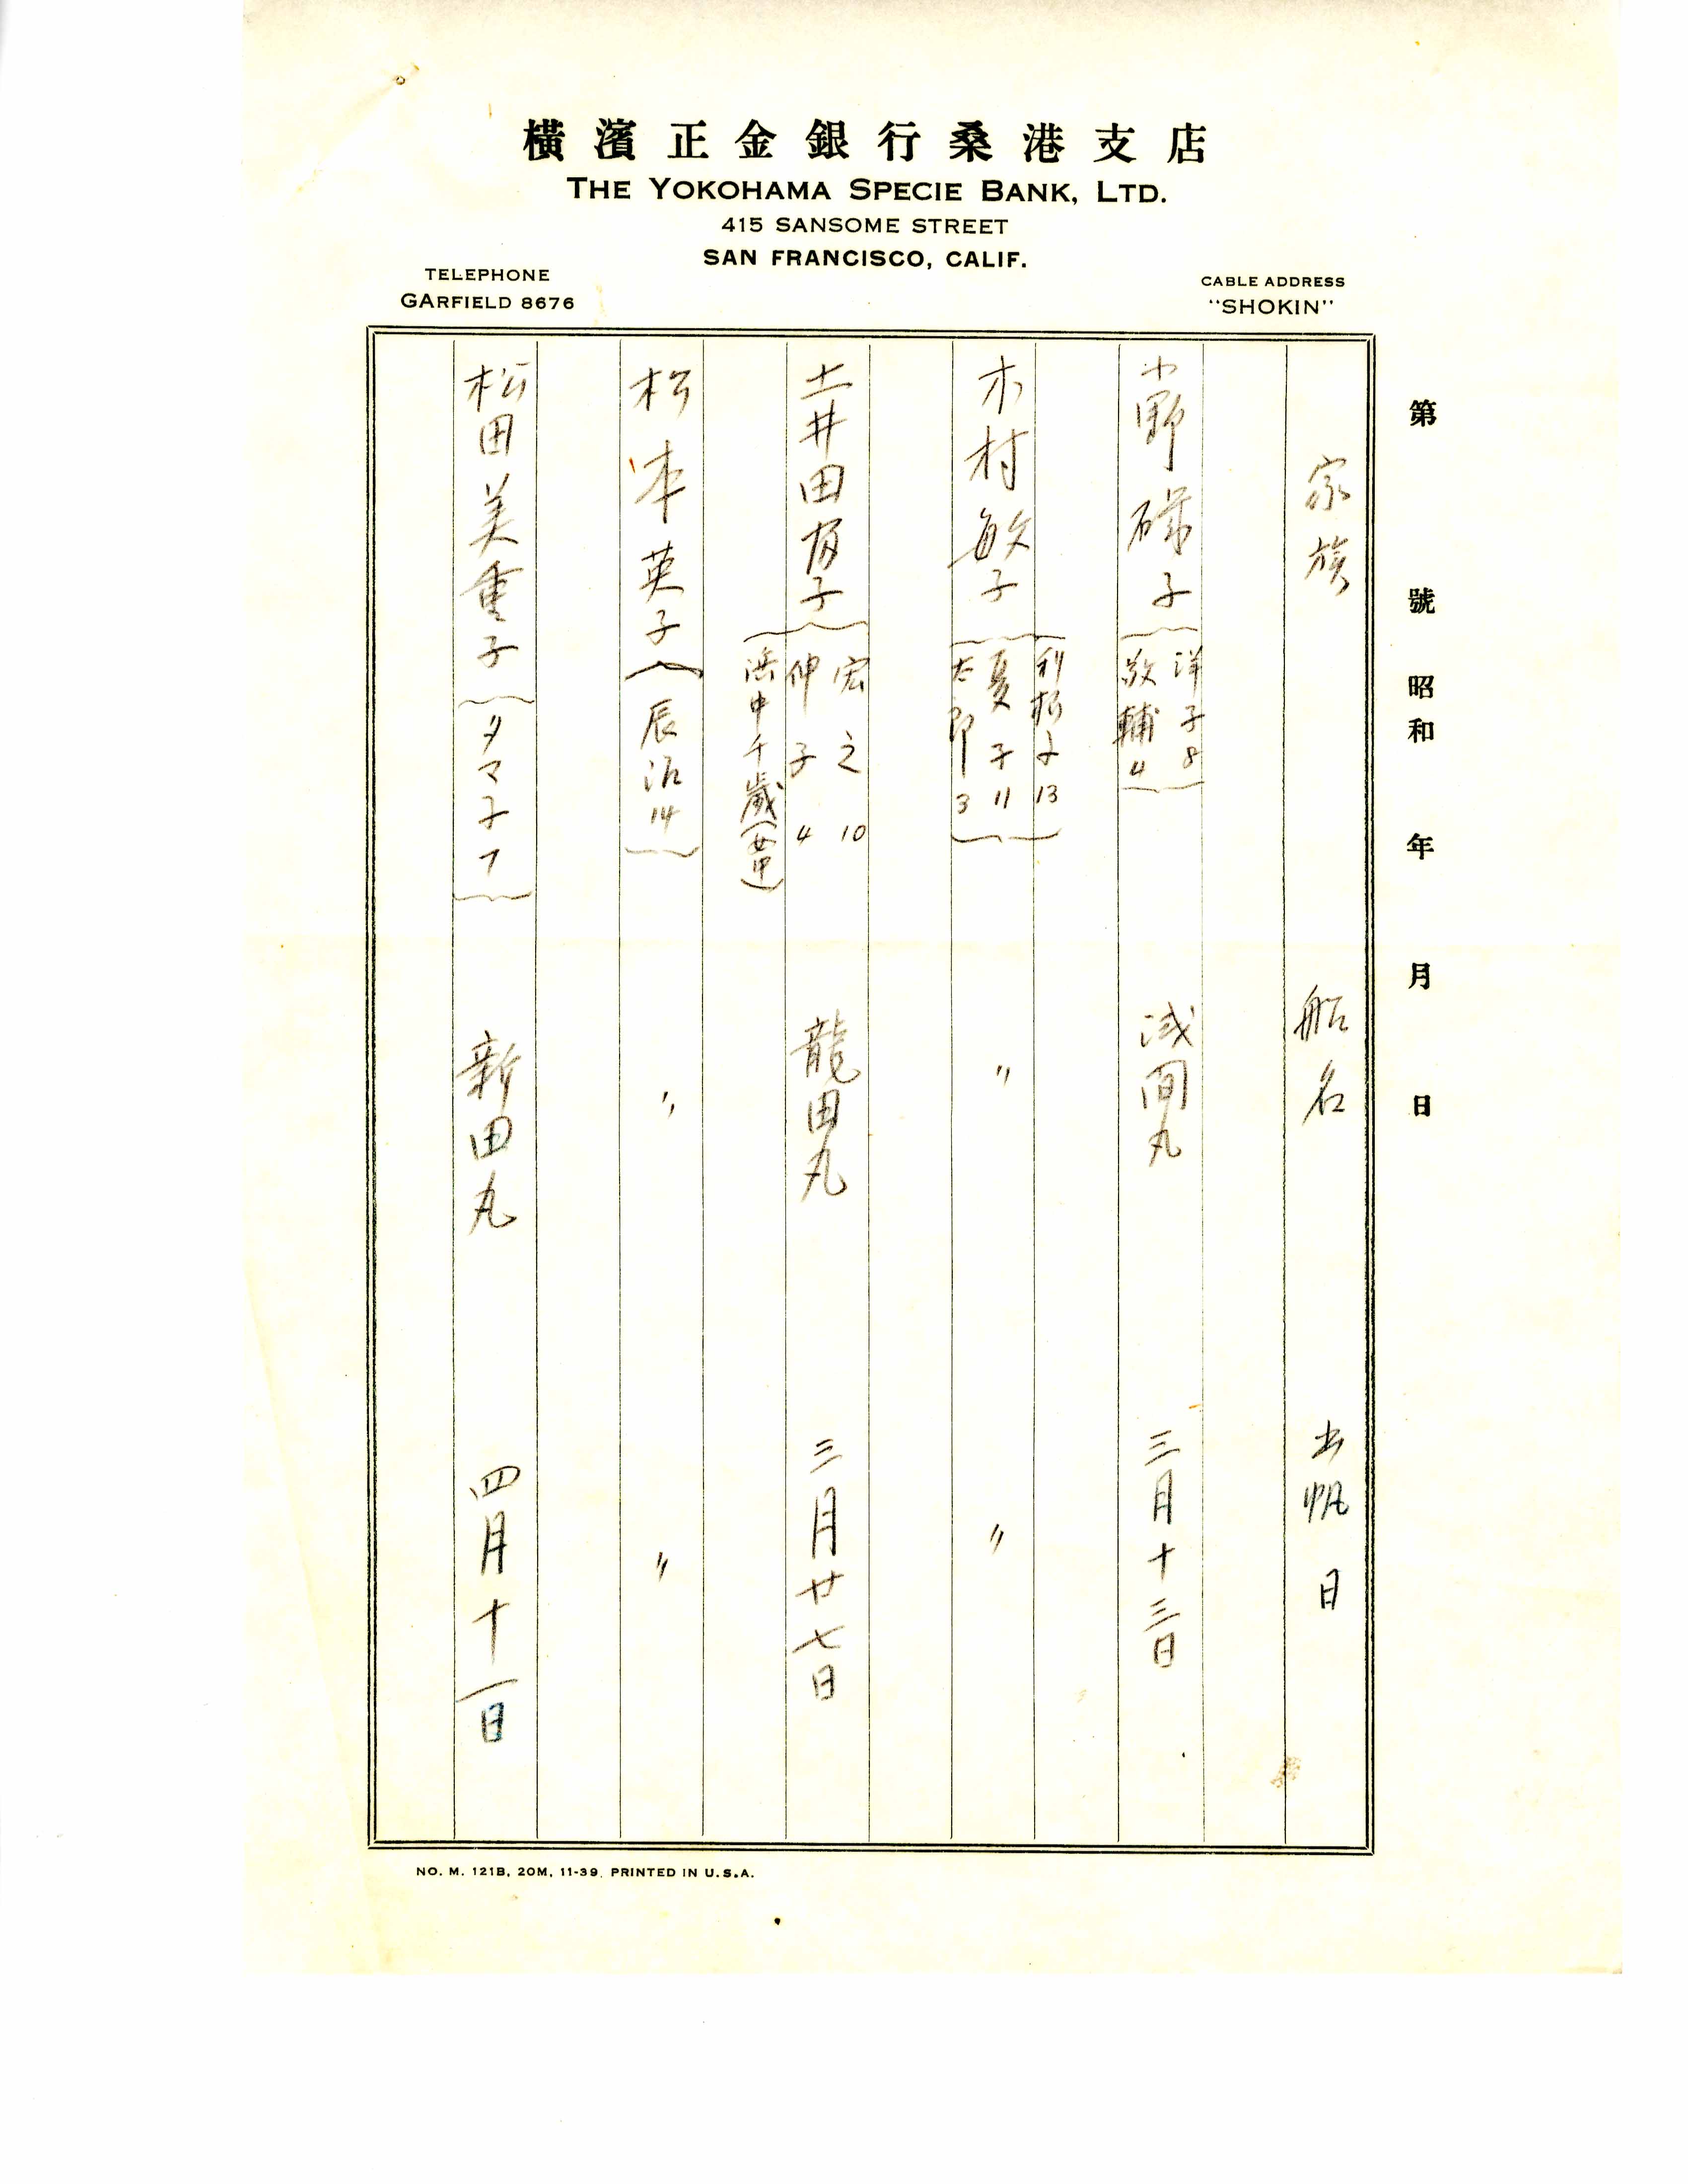 横濱正金銀行桑港支店
THE YOKOHAMA SPECIE BANK, LTD.
415 SANSOME STREET
SAN FRANCISCO, CALIF.
TELEPHONE
GARFIELD 8676
CABLE ADDRESS
"SHOKIN"
第 號 昭和 年 月 日
家族 船名 出帆日
小野 子 洋子8 敬輔4 浅間丸 三月十三日
木村敏子 子13 夏子11 太郎3 〃 〃
土井田 子 宏之10 伸子4 浜中千歳(女中) 龍田丸 三月廿七日
松本英子 辰治14 〃 〃
松田美重子 タマ子7 新田丸 四月十一日
NO. M. 121B, 20M, 11-39, PRINTED IN U.S.A.